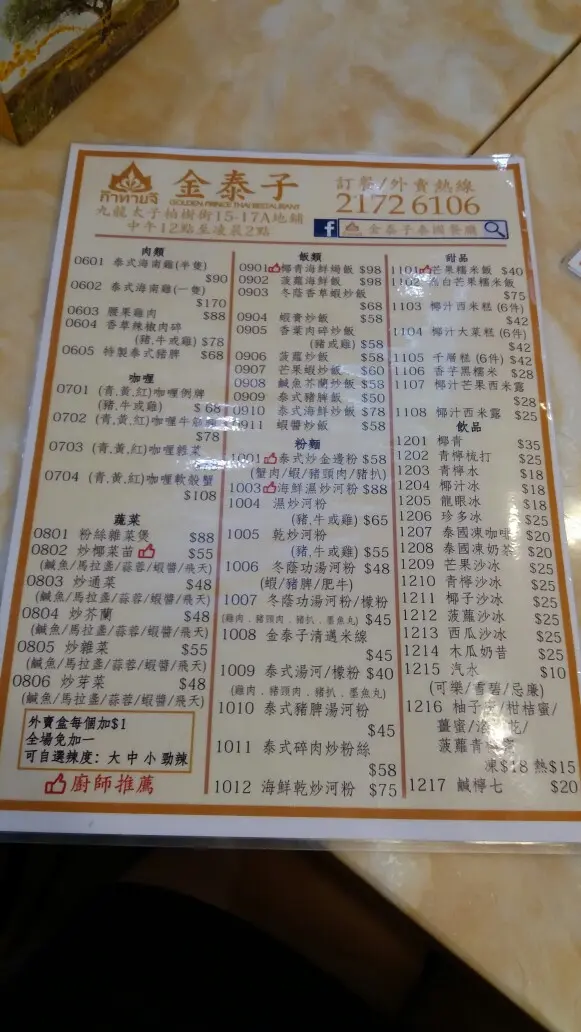 ก๊าทายจี
金泰子
GOLDEN PRINCE THAI RESTAURANT
九龍太子柏樹街15-17A地鋪
中午12點至凌晨2點
訂餐/外賣熱線
2172 6106
f 金泰子泰國餐廳
肉類
0601 泰式海南雞(半隻)
$90
0602 泰式海南雞(一隻)
$170
0603 腰果雞肉 $88
0604 香草辣椒肉碎
(豬,牛或雞) $78
0605 特製泰式豬脾 $68
咖喱
0701 (青,黃,紅)咖喱例牌
(豬,牛或雞) $68
0702 (青,黃,紅)咖喱牛
$78
0703 (青,黃,紅)咖喱雜菜
0704 (青,黃,紅)咖喱軟殼蟹
$108
蔬菜
0801 粉絲雜菜煲 $88
0802 炒椰菜苗 $55
(鹹魚/馬拉盞/蒜蓉/蝦醬/飛天)
0803 炒通菜 $48
(鹹魚/馬拉盞/蒜蓉/蝦醬/飛天)
0804 炒芥蘭 $48
(鹹魚/馬拉盞/蒜蓉/蝦醬/飛天)
0805 炒雜菜 $55
(鹹魚/馬拉盞/蒜蓉/蝦醬/飛天)
0806 炒芽菜 $48
(鹹魚/馬拉盞/蒜蓉/蝦醬/飛天)
外賣盒每個加$1
全場免加一
可自選辣度: 大 中 小 勁辣
廚師推薦
飯類
0901 椰青海鮮焗飯 $98
0902 菠蘿海鮮飯 $98
0903 冬蔭香草蝦炒飯
$68
0904 蝦膏炒飯 $58
0905 香葉肉碎炒飯
(豬或雞) $58
0906 菠蘿炒飯 $58
0907 芒果蝦炒飯 $60
0908 鹹魚芥蘭炒飯 $58
0909 泰式豬脾飯 $50
0910 泰式海鮮炒飯 $78
0911 蝦醬炒飯 $58
粉麵
1001 泰式炒金邊粉 $58
(蟹肉/蝦/豬頸肉/豬扒)
1003 海鮮濕炒河粉 $88
1004 濕炒河粉
(豬,牛或雞) $65
1005 乾炒河粉
(豬,牛或雞) $55
1006 冬蔭功湯河粉 $48
(蝦/豬脾/肥牛)
1007 冬蔭功湯河粉/檬粉
(雞肉,豬頸肉,豬扒,墨魚丸) $45
1008 金泰子清邁米線
$45
1009 泰式湯河/檬粉 $40
(雞肉,豬頸肉,豬扒,墨魚丸)
1010 泰式豬脾湯河粉
$45
1011 泰式碎肉炒粉絲
$58
1012 海鮮乾炒河粉 $75
甜品
1101 芒果糯米飯 $40
1102 芒果糯米飯
$75
1103 椰汁西米糕 (6件)
$42
1104 椰汁大菜糕 (6件)
$42
1105 千層糕 (6件) $42
1106 香子黑糯米 $28
1107 椰汁芒果西米露
$28
1108 椰汁西米露 $25
飲品
1201 椰青 $35
1202 青檸梳打 $25
1203 青檸水 $18
1204 椰汁冰 $18
1205 龍眼冰 $18
1206 珍多冰 $25
1207 泰國凍咖啡 $20
1208 泰國凍奶茶 $20
1209 芒果沙冰 $25
1210 青檸沙冰 $25
1211 椰子沙冰 $25
1212 菠蘿沙冰 $25
1213 西瓜沙冰 $25
1214 木瓜奶昔 $25
1215 汽水 $10
(可樂/雪碧/忌廉)
1216 柚子蜜/柑桔蜜/
薑蜜/花/
菠蘿青
凍$18 熱$15
1217 鹹檸七 $20